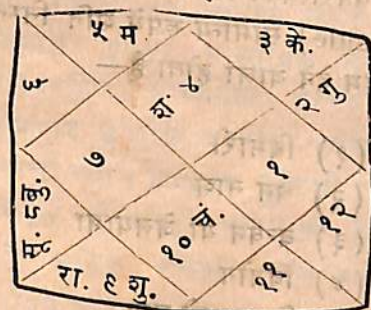 ५ म.
३ के.
६
श. ४
२ गु
७
१
सू. ८ बु.
१० चं.
१२
रा. ९ शु.
११